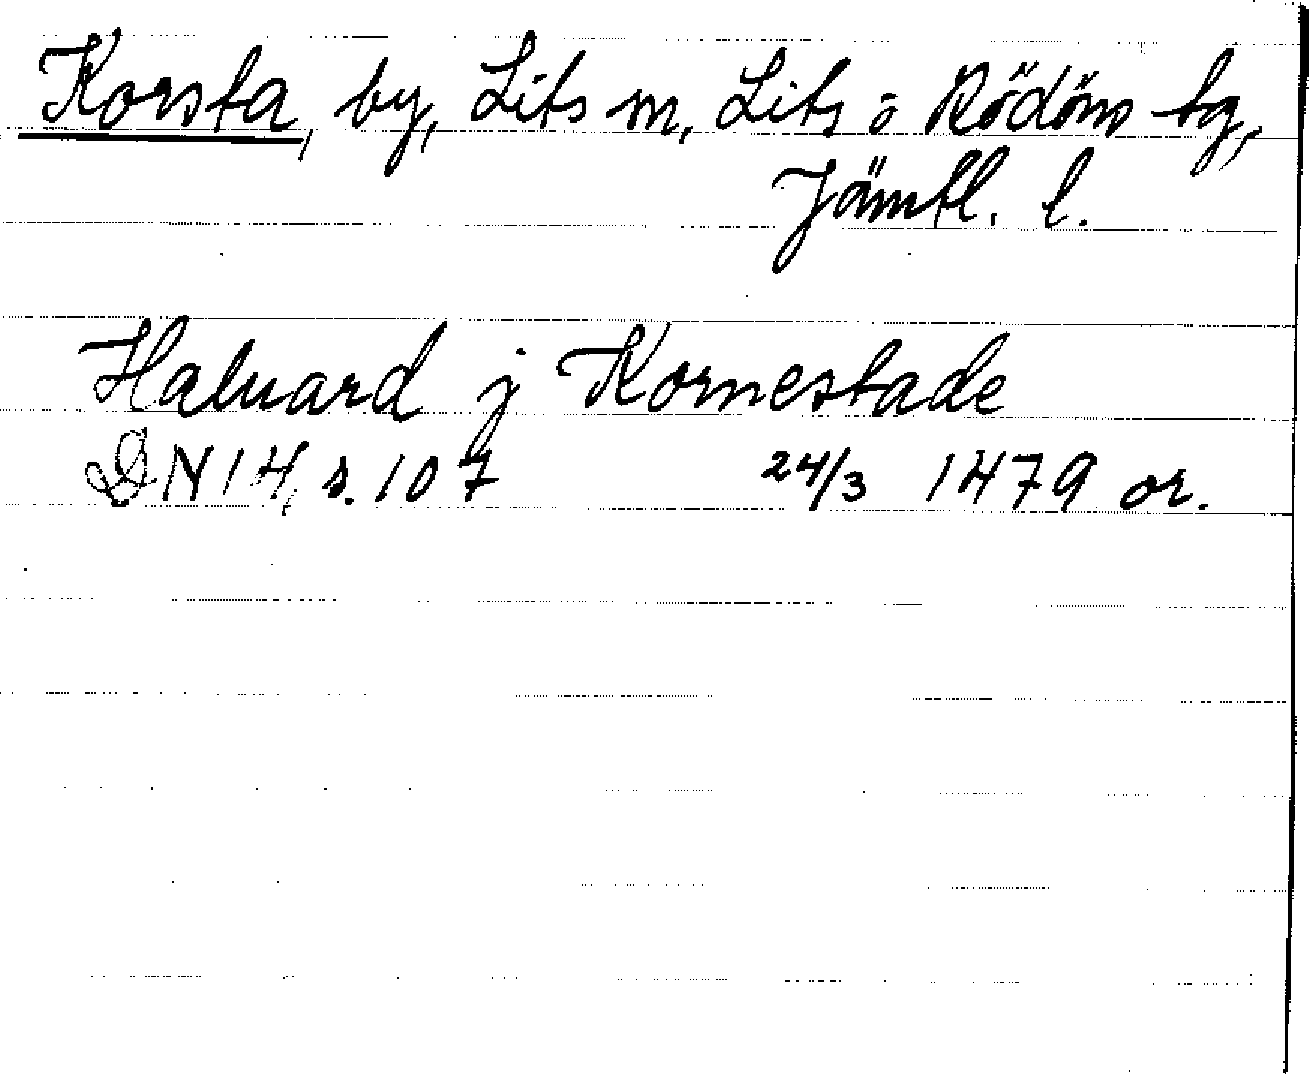 Korsta, by, Lits sn, Lits o Rödöns tg,
Jämtl. l.
Haluard j Kornestade
DN 14, s. 107 24/3 1479 or.